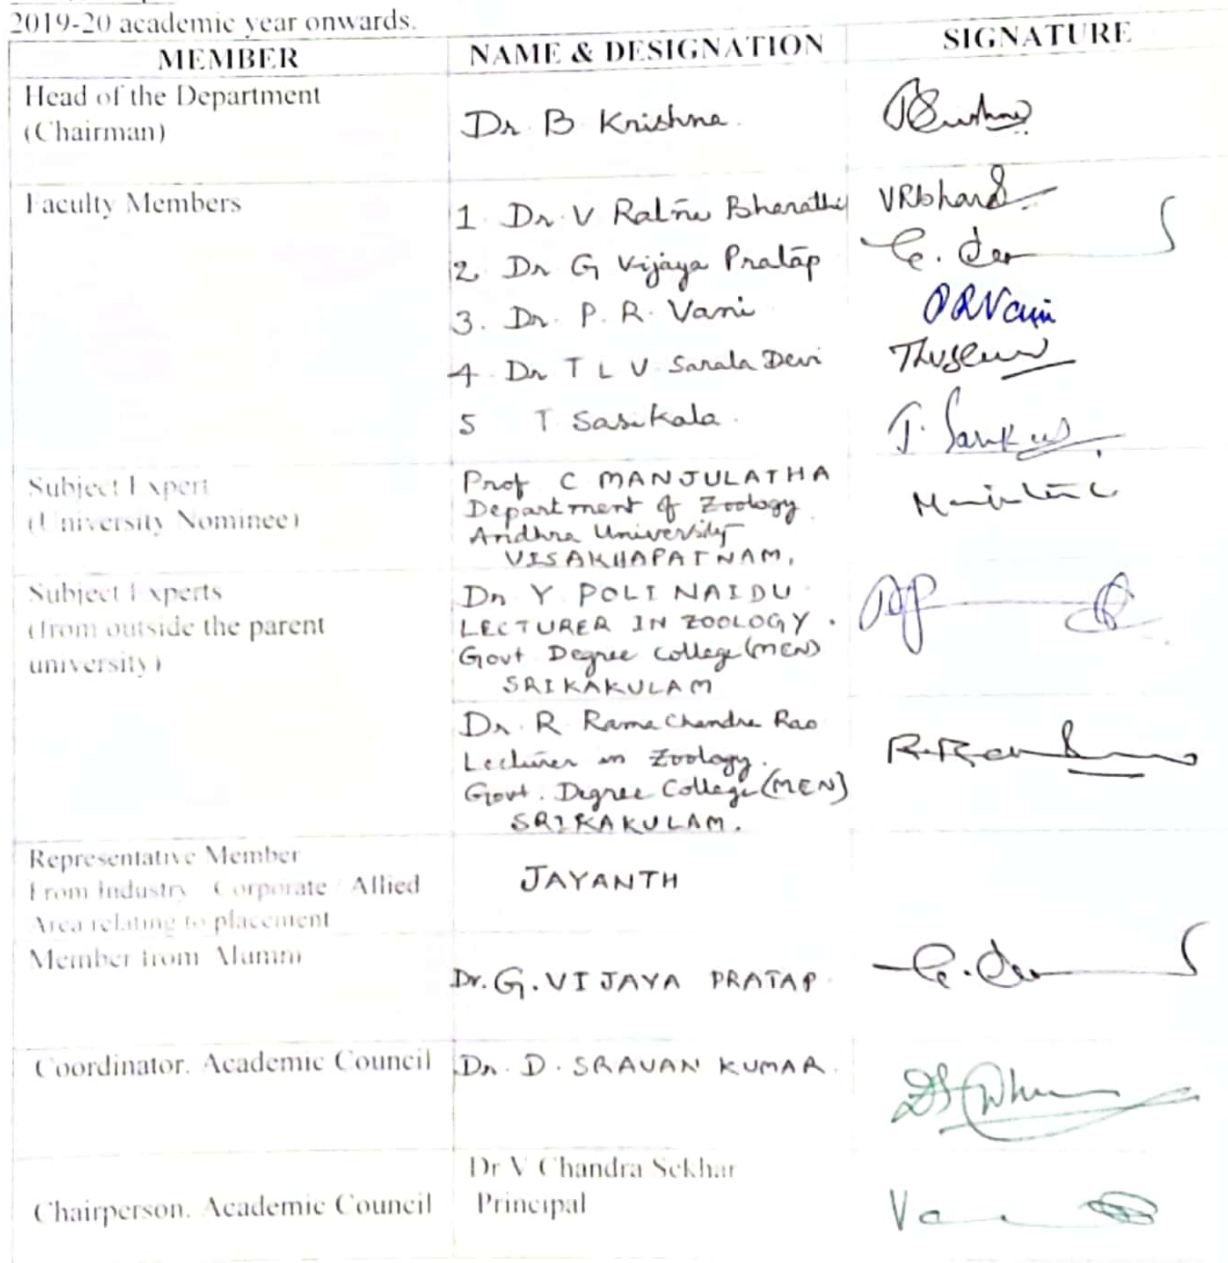 2019-20 academic year onwards.
MEMBER NAME & DESIGNATION SIGNATURE
Head of the Department
(Chairman)
Dr B Krishna
Faculty Members
1 Dr V Ratna Bharathi VRbharati
2 Dr G Vijaya Pratap
3. Dr. P. R. Vani PRVani
4 Dr T L V Sarala Devi
5 T Sasikala
Subject Expert
(University Nominee)
Prof C MANJULATHA
Department of Zoology
Andhra University
VISAKHAPATNAM.
Subject Experts
(from outside the parent
university)
Dr Y POLI NAIDU
LECTURER IN ZOOLOGY.
Govt Degree College (MEN)
SRIKAKULAM
Dr. R Rama Chandra Rao
Lecturer in Zoology.
Govt. Degree College (MEN)
SRIKAKULAM.
Representative Member
From Industry Corporate / Allied
Area relating to placement
JAYANTH
Member from Alumni
Dr. G. VIJAYA PRATAP
Coordinator. Academic Council Dr. D. SRAVAN KUMAR
Dr V Chandra Sekhar
Principal
Chairperson. Academic Council